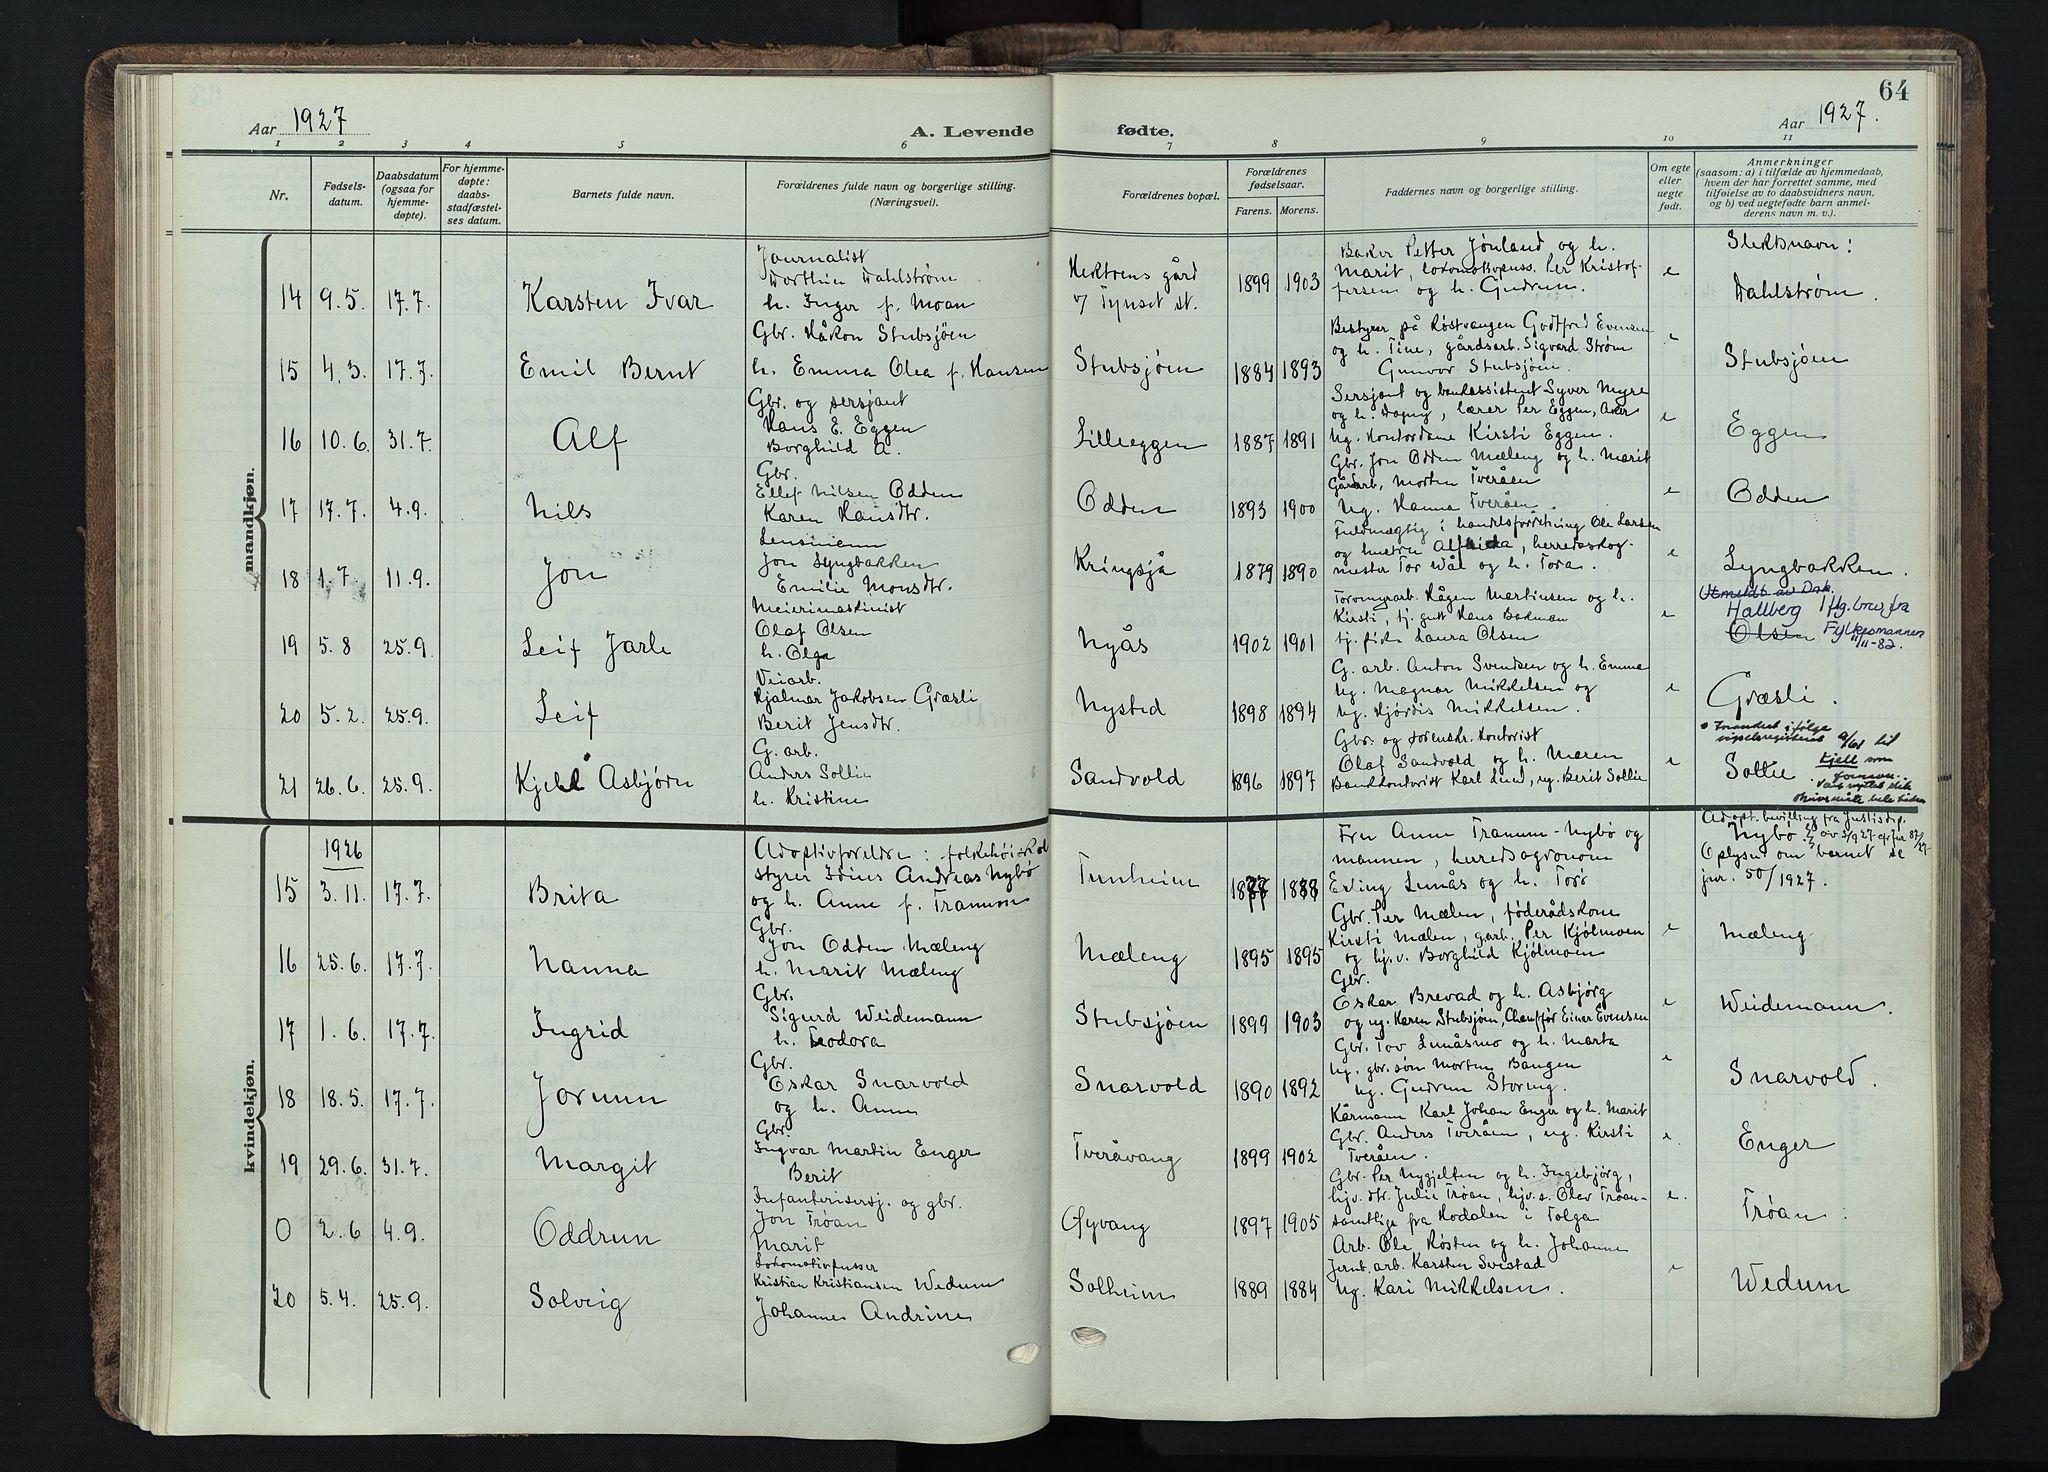 64
Aar 1927
A. Levende fødte.
Aar 1927.
1 2 3 4 5 6 7 8 9 10 11
Nr.
Fødsels-
datum.
Daabsdatum
(ogsaa for
hjemme-
døpte).
For hjemme-
døpte:
daabs-
stadfæstel-
ses datum.
Barnets fulde navn.
Forældrenes fulde navn og borgerlige stilling.
(Næringsvei).
Forældrenes bopæl.
Forældrenes
fødselsaar.
Farens. Morens.
Faddernes navn og borgerlige stilling.
Om egte
eller
uegte
født.
Anmerkninger
(saasom: a) i tilfælde av hjemmedaab,
hvem der har forrettet samme, med
tilføielse av to daabsvidners navn,
og b) ved uegtefødte barn anmel-
derens navn m. v.).
mandkjøn.
Slektsnavn:
14 9.5. 17.7. Karsten Ivar
Journalist
Dahlstrøm
h. Inger f. Moan
gård
v/ Tynset st.
1899 1903
Baker Petter Jønland og h.
Marit, lokomotivpuss. Per Kristof-
fersen og h. Gudrun.
e
Dahlstrøm.
15 4.3. 17.7. Emil Bernt
Gbr. Håkon Stubsjøen
h. Emma Olea f. Hansen
Stubsjøen
1884 1893
Bestyrer på Røstvangen Godtfred Evensen
og h. Tine, gårdsarb. Sigvard Strøm
Gunvor Stubsjøen.
e
Stubsjøen
16 10.6. 31.7. Alf
Gbr. og sersjant
Hans E. Eggen
Borghild A.
Lilleeggen
1887 1891
Sersjant og bankassistent Syver Myre
og h. Dagny, lærer Per Eggen, Aker
Ug. Kontordame Kirsti Eggen.
e
Eggen
17 17.7. 4.9. Nils
Gbr.
Ellef Nilsen Odden
Karen Hansdtr.
Odden
1893 1900
Gbr. Jon Odden Mæleng og h. Marit
Gårdarb. Morten Tveråen
Ug. Hanna Tveråen.
e
Odden
18 1.7. 11.9. Jon
Lensmann
Jon Lyngbakken
Emilie Monsdtr.
Kringsjå
1879 1890
Fuldmægtig i handelsforretning Ole Larsen
og hustru Alfrida, herredsskog-
mester Tor Wål og h. Tora.
e
Lyngbakken.
19 5.8 25.9. Leif Jarle
Meierimaskinist
Olaf Olsen
h. Olga
Nyås
1902 1901
Torvmyrarb. Hågen Martinsen og h.
Kirsti, tj. gutt Hans Bakman
tj. pike Laura Olsen
e
Utmeldt av Dnk.
Hallberg iflg. brev fra
Olsen Fylkesmannen
11/11-82.
20 5.2. 25.9. Leif
Veiarb.
Hjalmar Jakobsen Græsli
Berit Jensdtr.
Nysted
1898 1894
G. arb. Anton Svendsen og h. Emma
Ug. Magnar Mikkelsen og
ug. Hjørdis Mikkelsen.
e
Græsli.
21 26.6. 25.9. Kjell Asbjørn
G. arb.
Anders Sollie
h. Kristine
Sandvold
1896 1897
Gbr. og sorenskr. kontorist
Olaf Sandvold og h. Maren
Bankkontorist Karl Lund, ug. Berit Sollie
e
Sollie.
Forandret i følge
vigselsregisteret til
Kjell som
fornavn.
kvindekjøn.
15 1926 3.11. 17.7. Brita
Adoptivforeldre: folkehøiskole
styrer Idius Andreas Nybø
og h. Anne f. Tranum
Tunheim
1887 1888
Fru Anne Tranum-Nybø og
mannen, herredsagronom
Erling Lunås og h. Torø
Adopt. bevilling fra Justisdep.
Nybø. 5/9 27. cfr jur 87/27-
Oplysn. om barnet se
jur. 50/1927.
16 25.6. 17.7. Nanna
Gbr.
Jon Odden Mæleng
h. Marit Mæleng
Mæleng
1895 1895
Gbr. Per Mælen, føderådskone
Kirsti Mælen, g.arb. Per Kjølmoen
og hj.v. Borghild Kjølmoen
e
Mæleng
17 1.6. 17.7. Ingrid
Gbr.
Sigurd Weidemann
h. Teodora
Stubsjøen
1899 1903
Gbr.
Oskar Brevad og h. Asbjørg
og ug. Karen Stubsjøen, Chauffør Einar Evensen
e
Weidemann.
18 18.5. 17.7. Jorunn
Gbr.
Oskar Snarvold
og h. Anna
Snarvold
1890 1892
Gbr. Tov Lunåsmo og h. Marta
Ug. gbr. søn Morten Bangen
Ug. Gudrun Storeng.
e
Snarvold.
19 29.6. 31.7. Margit
Gbr.
Ingvar Martin Enger
Berit
Tveråvang
1899 1902
Kårmann Karl Johan Enger og h. Marit
Gbr. Anders Tveråen, ug. Kirsti
Tveråen.
e.
Enger
0 2.6 4.9. Oddrun
Infanterisersj. og gbr.
Jon Trøan
Marit
Øyvang
1897 1905
Gbr. Per Nygjelten og h. Ingebjørg,
hjv. dtr. Julie Trøan, hjv. s. Olav Trøan-
samtlige fra Hodalen i Tolga
e.
Trøan.
20 5.4. 25.9. Solveig
Lokomotivpusser
Kristian Kristiansen Wedum
Johanne Andrine
Solheim
1889 1884
Arb. Ole Røsten og h. Johanne
Jernb. arb. Karsten Svestad
Ug. Kari Mikkelsen.
e
Wedum